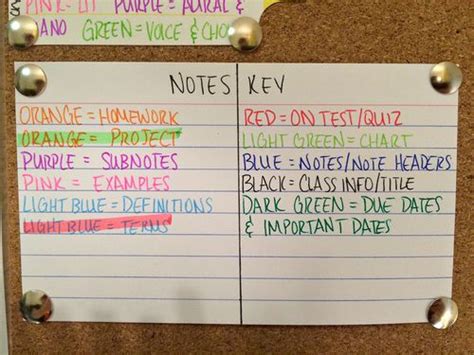 PINK = LIT PURPLE = AURAL &
ANO GREEN = VOICE & CHO
NOTES KEY
ORANGE = HOMEWORK
ORANGE = PROJECT
PURPLE = SUBNOTES
PINK = EXAMPLES
LIGHT BLUE = DEFINITIONS
LIGHT BLUE = TERMS
RED = ON TEST/QUIZ
LIGHT GREEN = CHART
BLUE = NOTES/NOTE HEADERS
BLACK = CLASS INFO/TITLE
DARK GREEN = DUE DATES
& IMPORTANT DATES